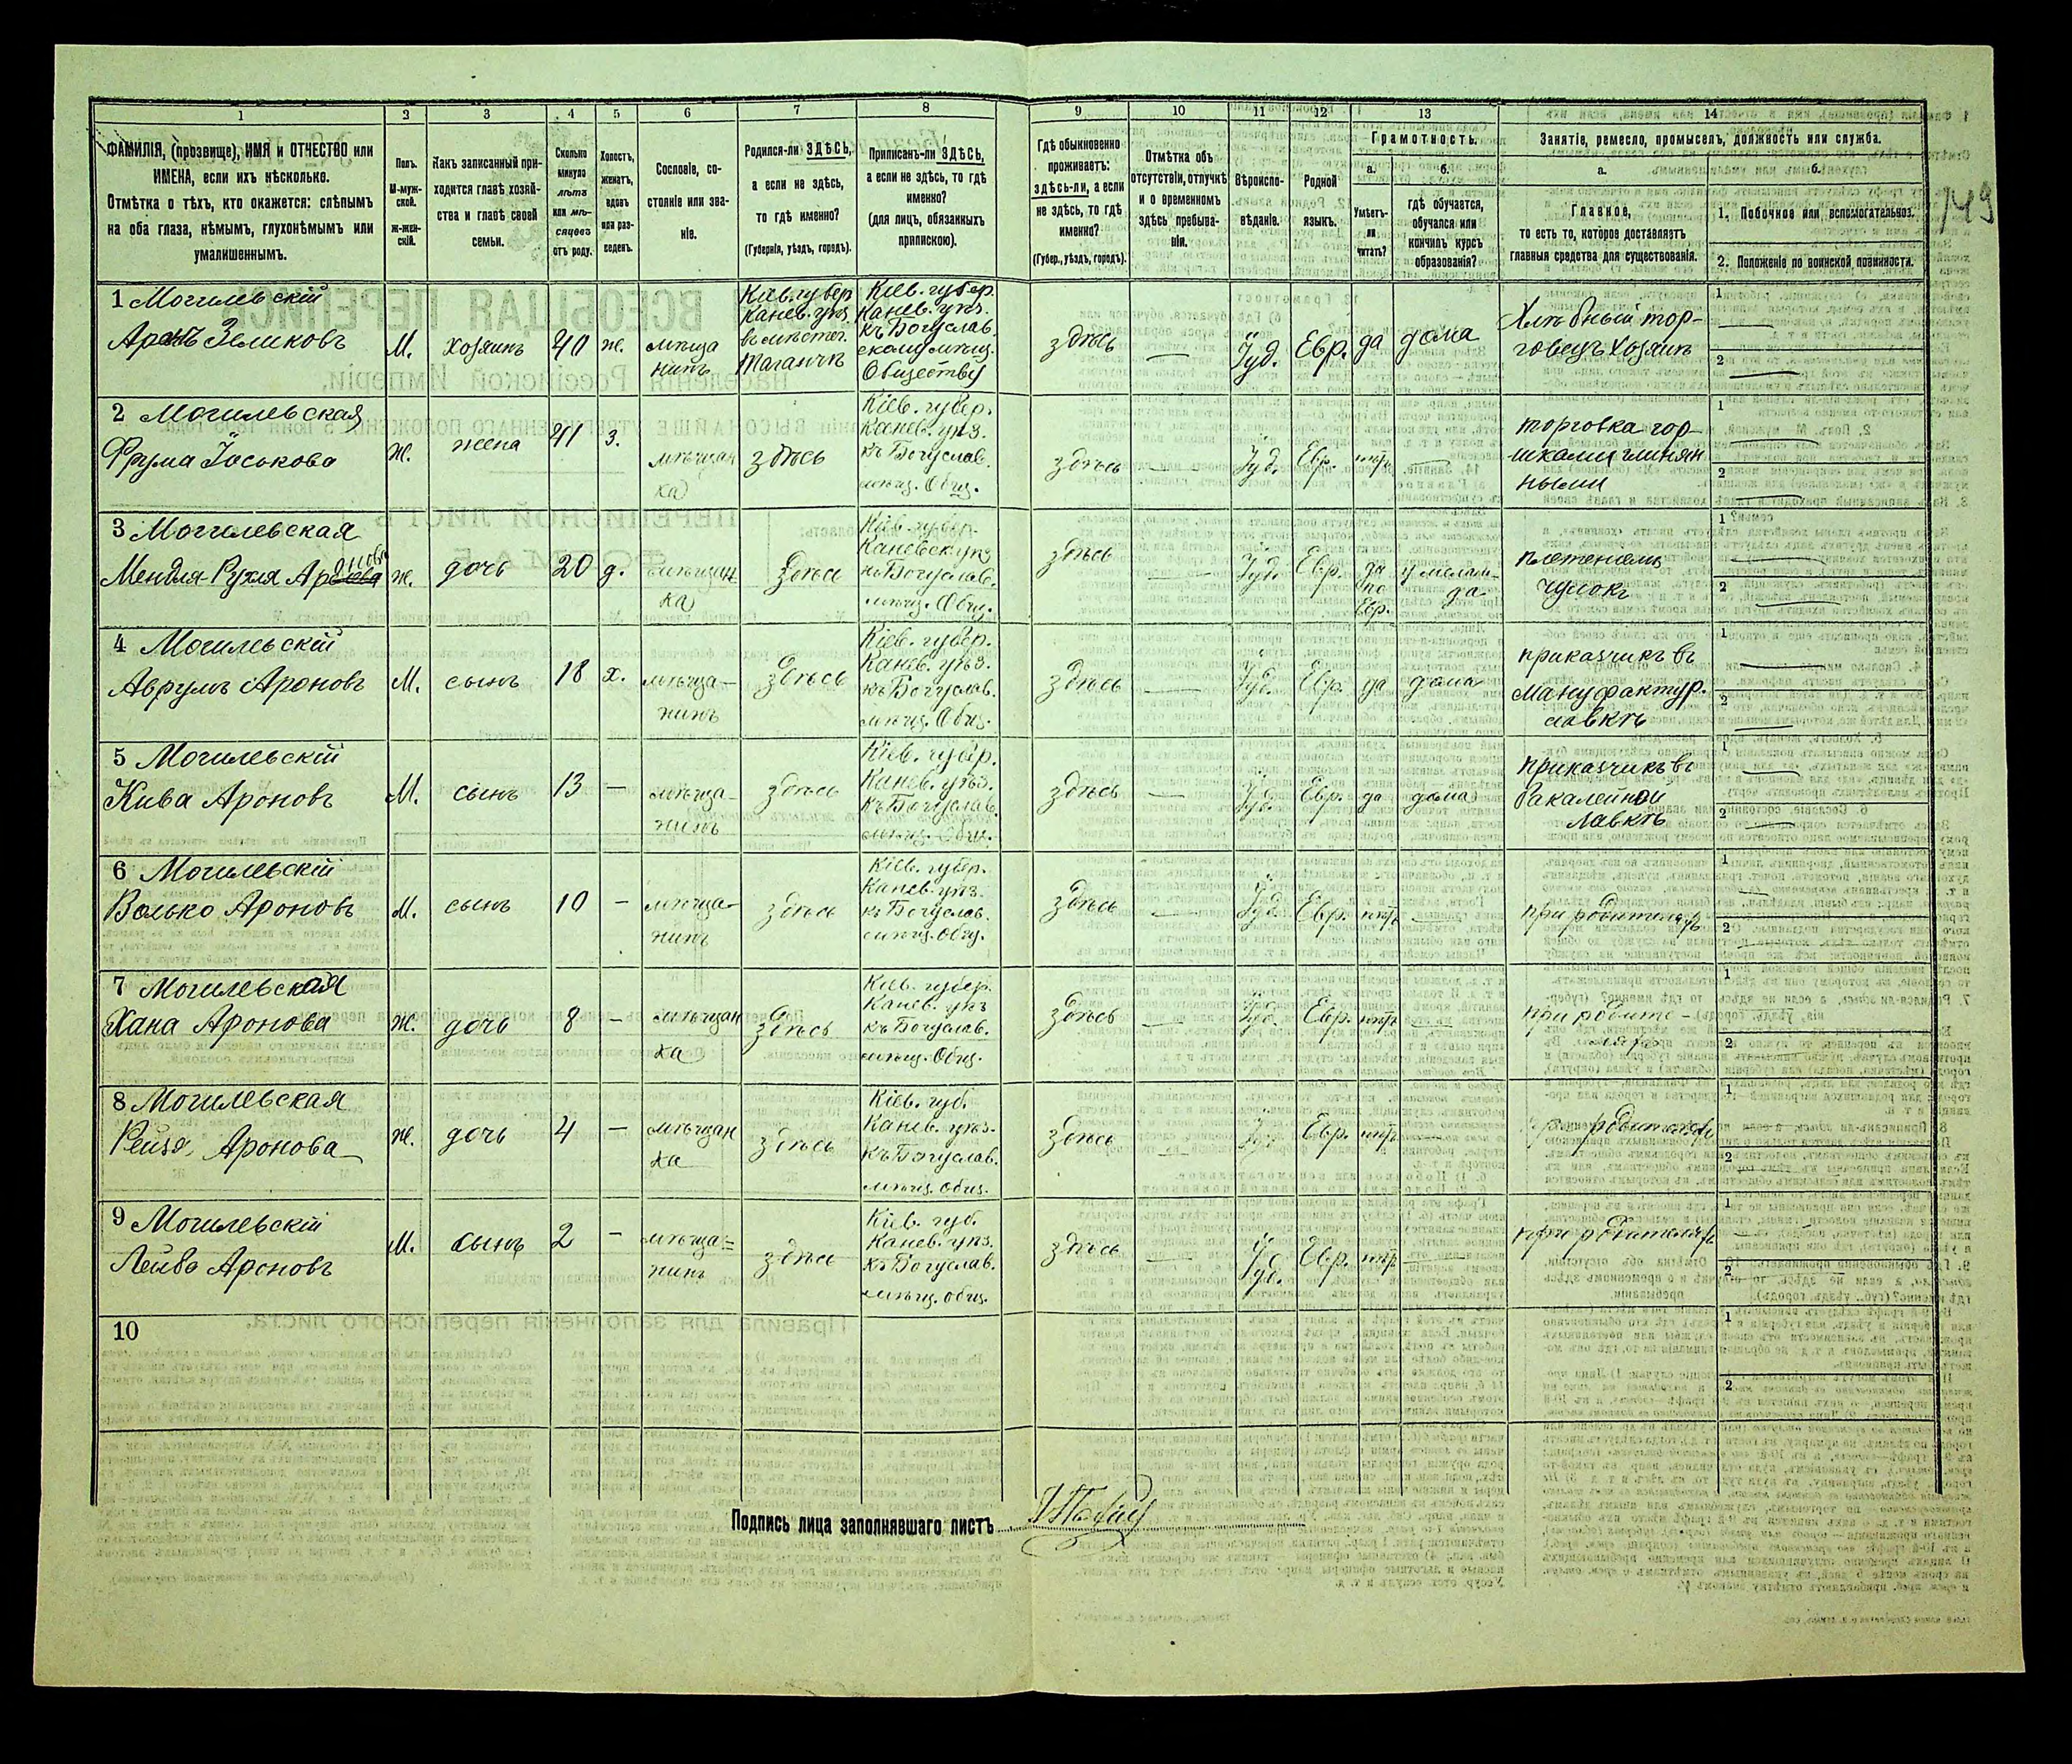 1 2 3 4 5 6 7 8 9 10 11 12 13 14
ФАМИЛІЯ, (прозвище), ИМЯ и ОТЧЕСТВО или
ИМЕНА, если ихъ нѣсколько.
Отмѣтка о тѣхъ, кто окажется: слѣпымъ
на оба глаза, нѣмымъ, глухонѣмымъ или
умалишеннымъ.
Полъ.
М-муж-
ской.
Ж-жен-
скій.
Какъ записанный при-
ходится главѣ хозяй-
ства и главѣ своей
семьи.
Сколько
минуло
лѣтъ
или мѣ-
сяцевъ
отъ роду.
Холостъ,
женатъ,
вдовъ
или раз-
веденъ.
Сословіе, со-
стояніе или зва-
ніе.
Родился-ли ЗДѢСЬ,
а если не здѣсь,
то гдѣ именно?
(Губернія, уѣздъ, городъ).
Приписанъ-ли ЗДѢСЬ,
а если не здѣсь, то гдѣ
именно?
(для лицъ, обязанныхъ
припискою).
Гдѣ обыкновенно
проживаетъ:
здѣсь-ли, а если
не здѣсь, то гдѣ
именно?
(Губер., уѣздъ, городъ).
Отмѣтка объ
отсутствіи, отлучкѣ
и о временномъ
здѣсь пребыва-
ніи.
Вѣроиспо-
вѣданіе.
Родной
языкъ.
Грамотность.
а.
Умѣетъ-
ли
читать?
б.
гдѣ обучается,
обучался или
кончилъ курсъ
образованія?
Занятіе, ремесло, промыселъ, должность или служба.
а.
Главное,
то есть то, которое доставляетъ
главныя средства для существованія.
б.
1. Побочное или вспомогательное.
2. Положеніе по воинской повинности.
149
1 Могилевскій
Аронъ Зеликовъ
М.
хозяинъ
40
ж.
мѣща
нинъ
Кіев. губер
Канев. уѣз.
въ мѣстеч.
Таганчѣ
Кіев. губер.
Канев. уѣз.
къ Богуслав.
скому мѣщ.
Обществу
здѣсь
—
Іуд.
Евр.
да
дома
Хлѣбный тор-
говецъ хозяинъ
1
2
2 Могилевская
Фрума Іоськова
Ж.
жена
41
з.
мѣщан
ка
здѣсь
Кіев. губер.
Канев. уѣз.
къ Богуслав.
мѣщ. Общ.
здѣсь
—
Іуд.
Евр.
нѣтъ
—
торговка гор-
шками глинян
ными
1
2
3 Могилевская
Мендля-Рухля Аронова
ж.
дочь
20
д.
мѣщан
ка
здѣсь
Кіев. губер.
Каневск. уѣз
къ Богуслав.
мѣщ. Общ.
здѣсь
—
Іуд.
Евр.
да
по
Евр.
у мелам-
да
плетеніемъ
чулокъ
1
2
4 Могилевскій
Аврумъ Ароновъ
М.
сынъ
18
х.
мѣща-
нинъ
здѣсь
Кіев. губер.
Канев. уѣз.
къ Богуслав.
мѣщ. Общ.
здѣсь
—
Іуд.
Евр.
да
дома
приказчикъ въ
мануфактур.
лавкѣ
1
2
5 Могилевскій
Кива Ароновъ
М.
сынъ
13
—
мѣща-
нинъ
здѣсь
Кіев. губер.
Канев. уѣз.
къ Богуслав.
мѣщ. Общ.
здѣсь
—
Іуд.
Евр.
да
дома
приказчикъ въ
бакалейной
лавкѣ
1
2
6 Могилевскій
Волько Ароновъ
М.
сынъ
10
—
мѣща-
нинъ
здѣсь
Кіев. губер.
Канев. уѣз.
къ Богуслав.
мѣщ. Общ.
здѣсь
—
Іуд.
Евр.
нѣтъ
—
при родителяхъ
1
2
7 Могилевская
Хана Аронова
Ж.
дочь
8
—
мѣщан
ка
здѣсь
Кіев. губер.
Канев. уѣз
къ Богуслав.
мѣщ. Общ.
здѣсь
—
Іуд.
Евр.
нѣтъ
—
при родите-
ляхъ
1
2
8 Могилевская
Рейзя Аронова
Ж.
дочь
4
—
мѣщан
ка
здѣсь
Кіев. губ.
Канев. уѣз.
къ Богуслав.
мѣщ. Общ.
здѣсь
—
Іуд.
Евр.
нѣтъ
—
при родителяхъ
1
2
9 Могилевскій
Лейба Ароновъ
М.
сынъ
2
—
мѣща=
нинъ
здѣсь
Кіев. губ.
Канев. уѣз.
къ Богуслав.
мѣщ. общ.
здѣсь
—
Іуд.
Евр.
нѣтъ
—
при родителяхъ
1
2
10
1
2
Подпись лица заполнявшаго листъ